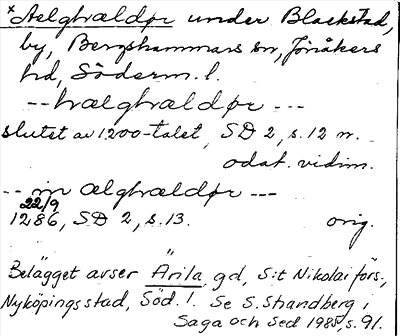 × Aelghældpr under Blackstad,
by, Bergshammars sn, Jönåkers
hd, Söderm. l.
-- hælghældpr ---
slutet av 1200-talet, SD 2, s. 12 n.
odat. vidim.
-- in ælghældpr ---
22/9
1286, SD 2, s. 13. orig.
Belägget avser Ärila gd, S:t Nikolai förs.,
Nyköpings stad, Söd. l. Se S. Strandberg i
Saga och Sed 1985, s. 91.